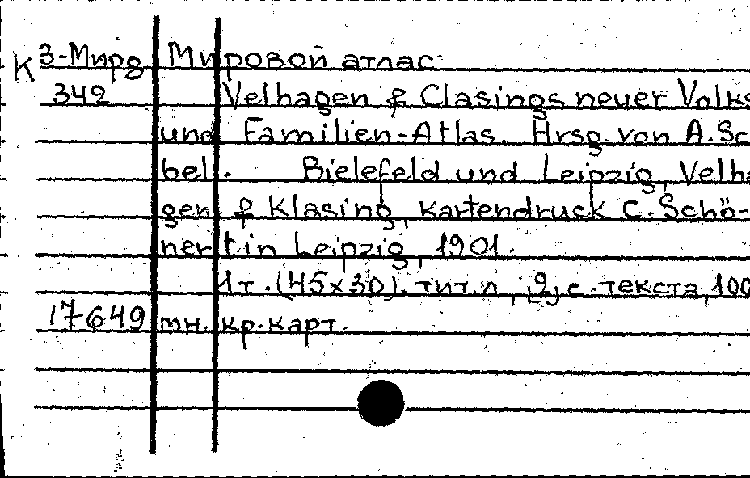 К З-Мирд Мировой атлас
342 Velhagen & Clasings neuer Volks
und Familien-Atlas. Hrsg. von A. Sc
bel. Bielefeld und Leipzig, Velha
gen & Klasing, Kartendruck C. Schö-
nert in Leipzig, 1901.
1т. (45x30). тит. л., 2, с. текста, 100
17649 мн. кр. карт.